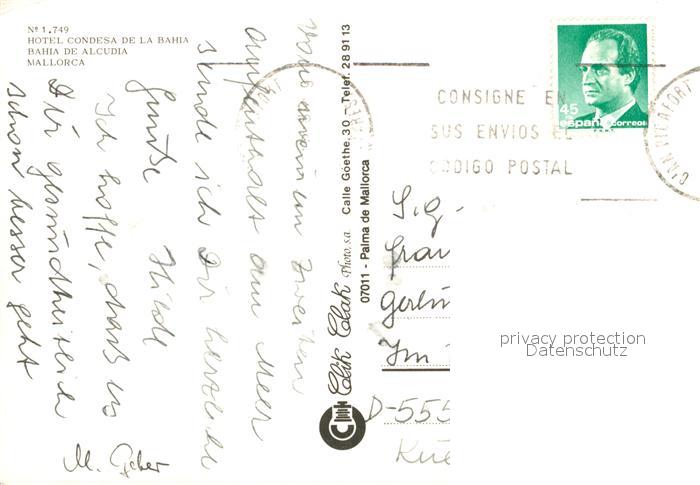 Nº 1.749
HOTEL CONDESA DE LA BAHIA
BAHIA DE ALCUDIA
MALLORCA
Von meinem zweiten
Aufenthalt am Meer
sende ich Dir herzliche
Grüße Hilde
Ich hoffe, daß es
Dir gesundheitlich
schon besser geht
M. Geber
Clik Clak Photo, s.a. Calle Goethe, 30 - Telef. 28 91 13
07011 - Palma de Mallorca
CONSIGNE EN
SUS ENVIOS EL
CODIGO POSTAL
CAN PICAFORT
45
españa correos
S.g.
Frau
Im
D-555
Kue
privacy protection
Datenschutz